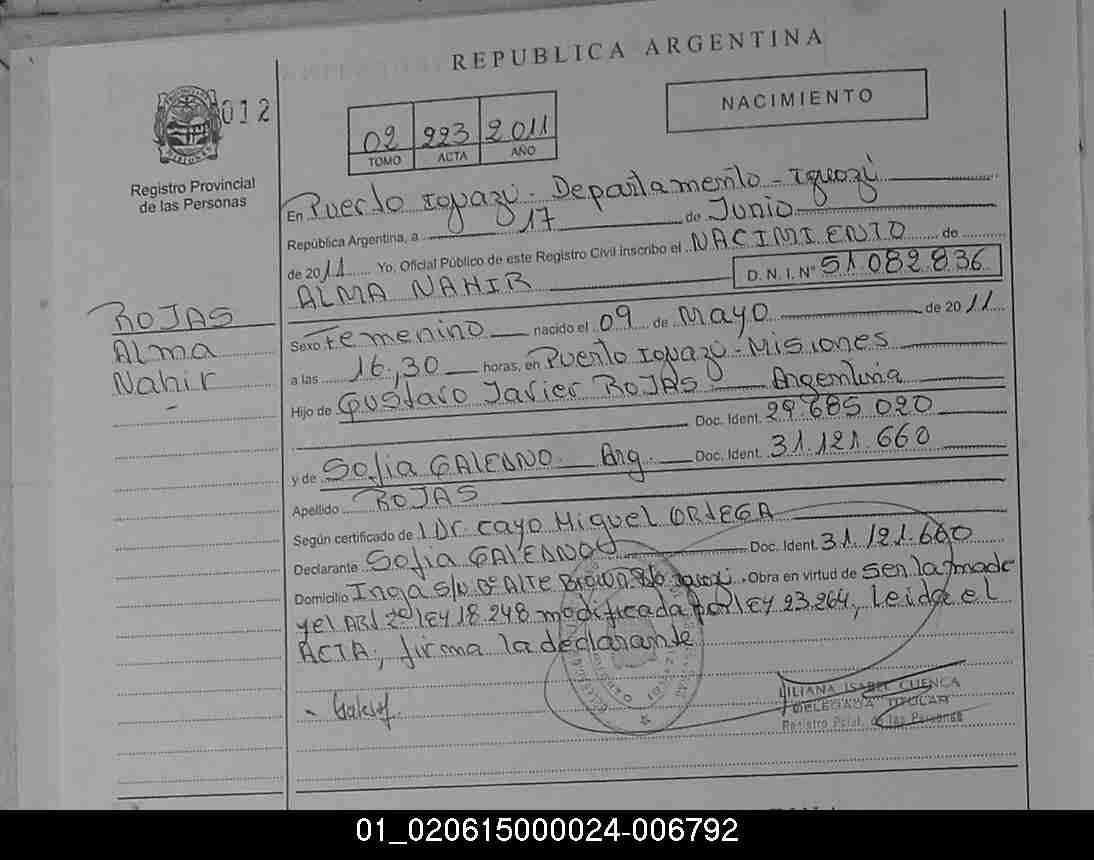 REPUBLICA ARGENTINA
012
NACIMIENTO
02 223 2011
TOMO ACTA AÑO
Registro Provincial
de las Personas
En Puerto Iguazú - Departamento - Iguazú
República Argentina, a 17 de Junio
de 2011 Yo, Oficial Público de este Registro Civil inscribo el NACIMIENTO de
ALMA NAHIR D. N. I. Nº 51.082.836
ROJAS
Alma
Nahir
Sexo Femenino nacido el 09 de Mayo de 2011
a las 16,30 horas, en Puerto Iguazú - Misiones
Hijo de Gustavo Javier ROJAS Argentina
Doc. Ident. 29.685.020
y de Sofia GALEANO Arg. Doc. Ident. 31.121.660
Apellido ROJAS
Según certificado de Dr. Cayo Miguel ORTEGA
Declarante Sofia GALEANO Doc. Ident. 31.121.660
Domicilio s/n Bº ALTE Brown Obra en virtud de Ser la madre
y el ARt 2º LEY 18.248 modificada por LEY 23.264, Leida el
ACTA, firma la declarante
LILIANA ISABEL CUENCA
DELEGADA TITULAR
Registro Pcial. de las Personas
01_020615000024-006792